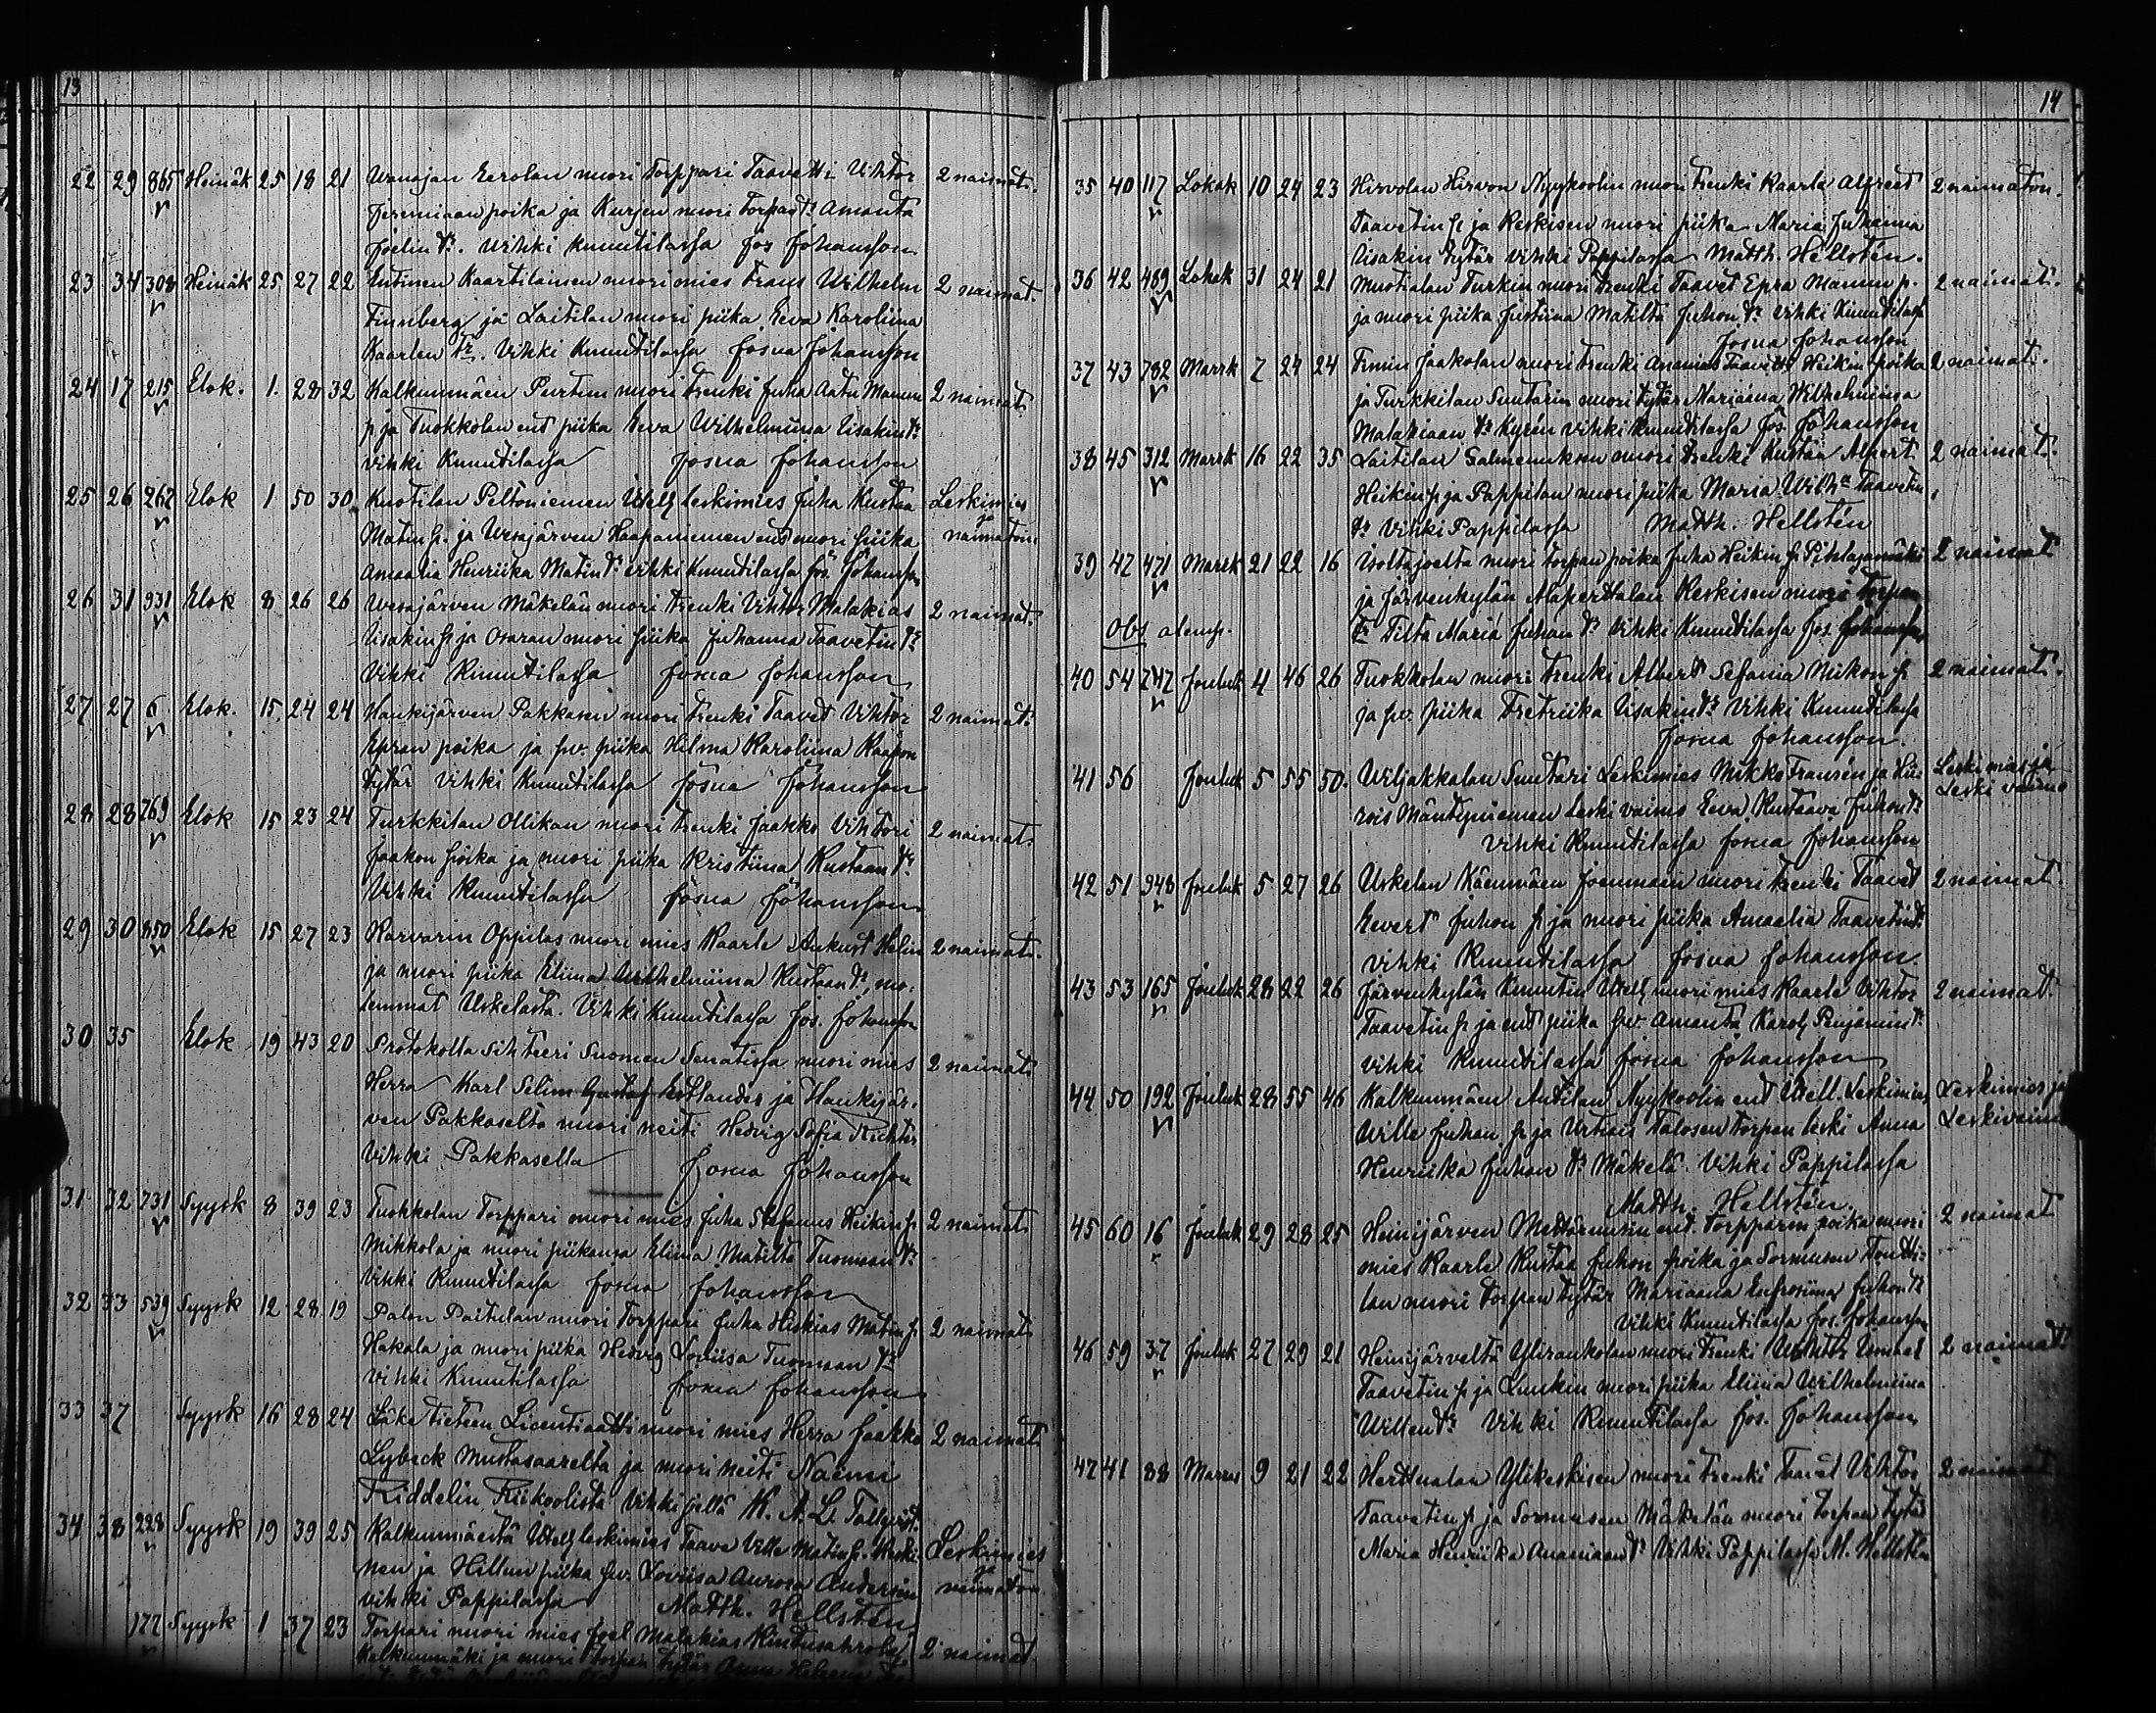 13
22 29 865 Heinäk 25 18 21 Wanajan Eerolan nuori torppari Taavetti Vihtor 2 naimat.
Jeremiaan poika ja Kurjen nuori torpan tr. Amanta
Joelin tr. Vihki Knuutilassa Jos Johansson
23 34 308 Heinäk 25 27 22 Entinen Kaartilainen nuori mies Frans Wilhelm 2 naimat.
Finnberg ja Laitilan nuori piika Eeva Karoliina
Kaarlen tr. Vihki Knuutilassa Josua Johansson
24 17 215 Elok. 1. 28 32 Kalkunmäen nuori trenki Juha Aatu Mannun 2 naimat.
p ja Tuokkolan ent piika Eeva Wilhelmiina Iisakin tr
vihki Knuutilassa Josua Johansson
25 26 262 Elok 1 50 30 Peltoniemen Itsell leskimies Juha Kustaa Leskimies
Matin p. ja Vesajärven Haapaniemen ent nuori piika ja naimaton
Amaalia Henriika Matin tr vihki Knuutilassa Jos. Johansson
26 31 931 Elok 8 26 26 Vesajärven Mäkelän nuori trenki Vihtor Malakias 2 naimat.
Iisakin p ja Osaran nuori piika Juhanna Taavetin tr
Vihki Knuutilassa Josua Johansson
27 27 6 Elok. 15 24 24 Haukijärven Pakkasen nuori trenki Taavet Vihtor 2 naimat.
Epran poika ja pv. piika Hilma Karoliina Kaapon
tytär Vihki Knuutilassa Josua Johansson
28 28 769 Elok 15 23 24 Turkkilan Ollikan nuori trenki Jaakko Vihtori 2 naimat.
Jaakon poika ja nuori piika Kristiina Kustaan tr.
Vihki Knuutilassa Josua Johansson
29 30 850 Elok 15 27 23 Karvarin Oppilas nuori mies Kaarle Aukust Helin 2 naimat.
ja nuori piika Eliina Wilhelmiina Kustaan tr, mo-
lemmat Uskelasta. Vihki Knuutilassa Jos. Johansson
30 35 Elok 19 43 20 Protokolla Sihteeri Suomen Senatissa nuori mies 2 naimat.
Herra Karl Selim Gustaf Estlander ja Haukijär-
ven Pakkaselta nuori neiti Hedvig Sofia Richter
Vihki Pakkasella Josua Johansson
31 32 731 Syysk 8 39 23 Tuokkolan Torppari nuori mies Juha Stefanus Heikin p 2 naimat.
Mikkola ja nuori piikansa Eliina Matilta Tuomaan tr.
Vihki Knuutilassa Josua Johansson
32 33 539 Syysk 12 28 19 Palon nuori Torppari Juha Hiskias Matin p 2 naimat.
Hakala ja nuori piika Hedvig Loviisa Tuomaan tr
vihki Knuutilassa Josua Johansson
33 37 Syysk 16 28 24 Lääke tieteen Licentiaatti nuori mies Herra Jaakko 2 naimat.
Lybeck Mustasaarelta ja nuori neiti Naëmi
Riddelin, Riikoolista Vihki heillä K. A. L. Tallqvist.
34 38 228 Syysk 19 39 25 Kalkunmäestä Itsell leskimies Taave Ville Matin p. Leskimies
nen ja Hillun piika pv. Loviisa Aurora Andersin ja naimaton
vihki Pappilassa Matth. Hellstén.
177 Syysk 1 37 23 Torpari nuori mies Joel Malakias 2 naimat.
Kalkunmäki ja nuori torpan tytär Anna
14
35 40 117 Lokak 10 24 23 Hirvolan Hirvon Nyykoolin nuori trenki Kaarle Alfreet 2 naimaton.
Taavetin p ja Keskisen nuori piika Maria Juhanna
Iisakin tytär vihki Pappilassa Matth. Hellstén.
36 42 489 Lokak 31 24 21 Muotialan Turkin nuori trenki Taavet Epra Mannun p. 2 naimat.
ja nuori piika Justiina Matilta Juhon tr vihki Knuutilassa
Josua Johansson
37 43 782 Marrk 7 24 24 Jaakolan nuori trenki Ananias Taavetti Heikin poika 2 naimat.
ja Turkkilan Suutarin nuori tytär Mariaana Wilhelmiina
Malakiaan tr Kyrén vihki Knuutilassa Jos. Johansson
38 45 312 Marrk 16 22 35 Laitilan nuori trenki Kustaa Alpert 2 naimat.
Heikin p ja Pappilan nuori piika Maria Wilha Taavetin
tr Vihki Pappilassa Matth. Hellstén
39 47 471 Marrk 21 22 16 nuori torpan poika Juha Heikin p. Pihlajamäki 2 naimat
ja Järvenkylän Alaperttalan Keskisen nuori torpan
tr Tilta Maria Juhan tr Vihki Knuutilassa Jos. Johansson
Obs alemp.
40 54 747 Jouluk 4 46 26 Tuokkolan nuori trenki Albert Sefania Mikon p 2 naimat.
ja pv. piika Fretriika Iisakin tr vihki Knuutilassa
Josua Johansson.
41 56 Jouluk 5 55 50 Viljakkalan Suutari Leskimies Mikko Fransén ja Hii- Leski mies ja
rois Mäntyniemen leski vaimo Eeva Kustaava Juhon tr Leski vaimo
vihki Knuutilassa Josua Johansson
42 51 948 Jouluk 5 27 26 Uskelan Kämmäen nuori trenki Taavet 2 naimat.
Evert Juhon p ja nuori piika Amaalia Taavetin tr
vihki Knuutilassa Josua Johansson
43 53 165 Jouluk 28 22 26 Järvenkylän Knuutin Itsell nuori mies Kaarle Vihtor 2 naimat.
Taavetin p ja ent piika pv. Amanta Karol Penjamin tr
vihki Knuutilassa Josua Johansson
44 50 192 Jouluk 28 55 46 Kalkunmäen Antilan Nyykoolin ent Itsell. Leskimies Leskimies ja
Wille Juhan p ja Urhais Talosen torpan leski Anna Leskivaimo
Henriika Juhon tr Mäkelä. Vihki Pappilassa
Matth. Hellstén.
45 60 16 Jouluk 29 28 25 Heinijärven ent. Torpparin poika nuori 2 naimat
mies Kaarle Kustaa Juhon poika ja Sormusen Tontti-
lan nuori torpan tytär Mariaana Eufrosiina Juhon tr
Vihki Knuutilassa Jos. Johansson
46 59 37 Jouluk 27 29 21 Heinijärveltä Yliraukolan nuori trenki Vihtor 2 naimat.
Taavetin p ja Luukin nuori piika Eliina Wilhelmiina
Willen tr Vihki Knuutilassa Jos. Johansson
47 41 88 Marras 9 21 22 Herttualan Ylikeskisen nuori trenki Taavet Vihtor 2 naimat
Taavetin p ja Sormusen Mäkelän nuori torpan tytär
Maria Henriika Ananiaan tr Vihki Pappilassa M. Hellstén